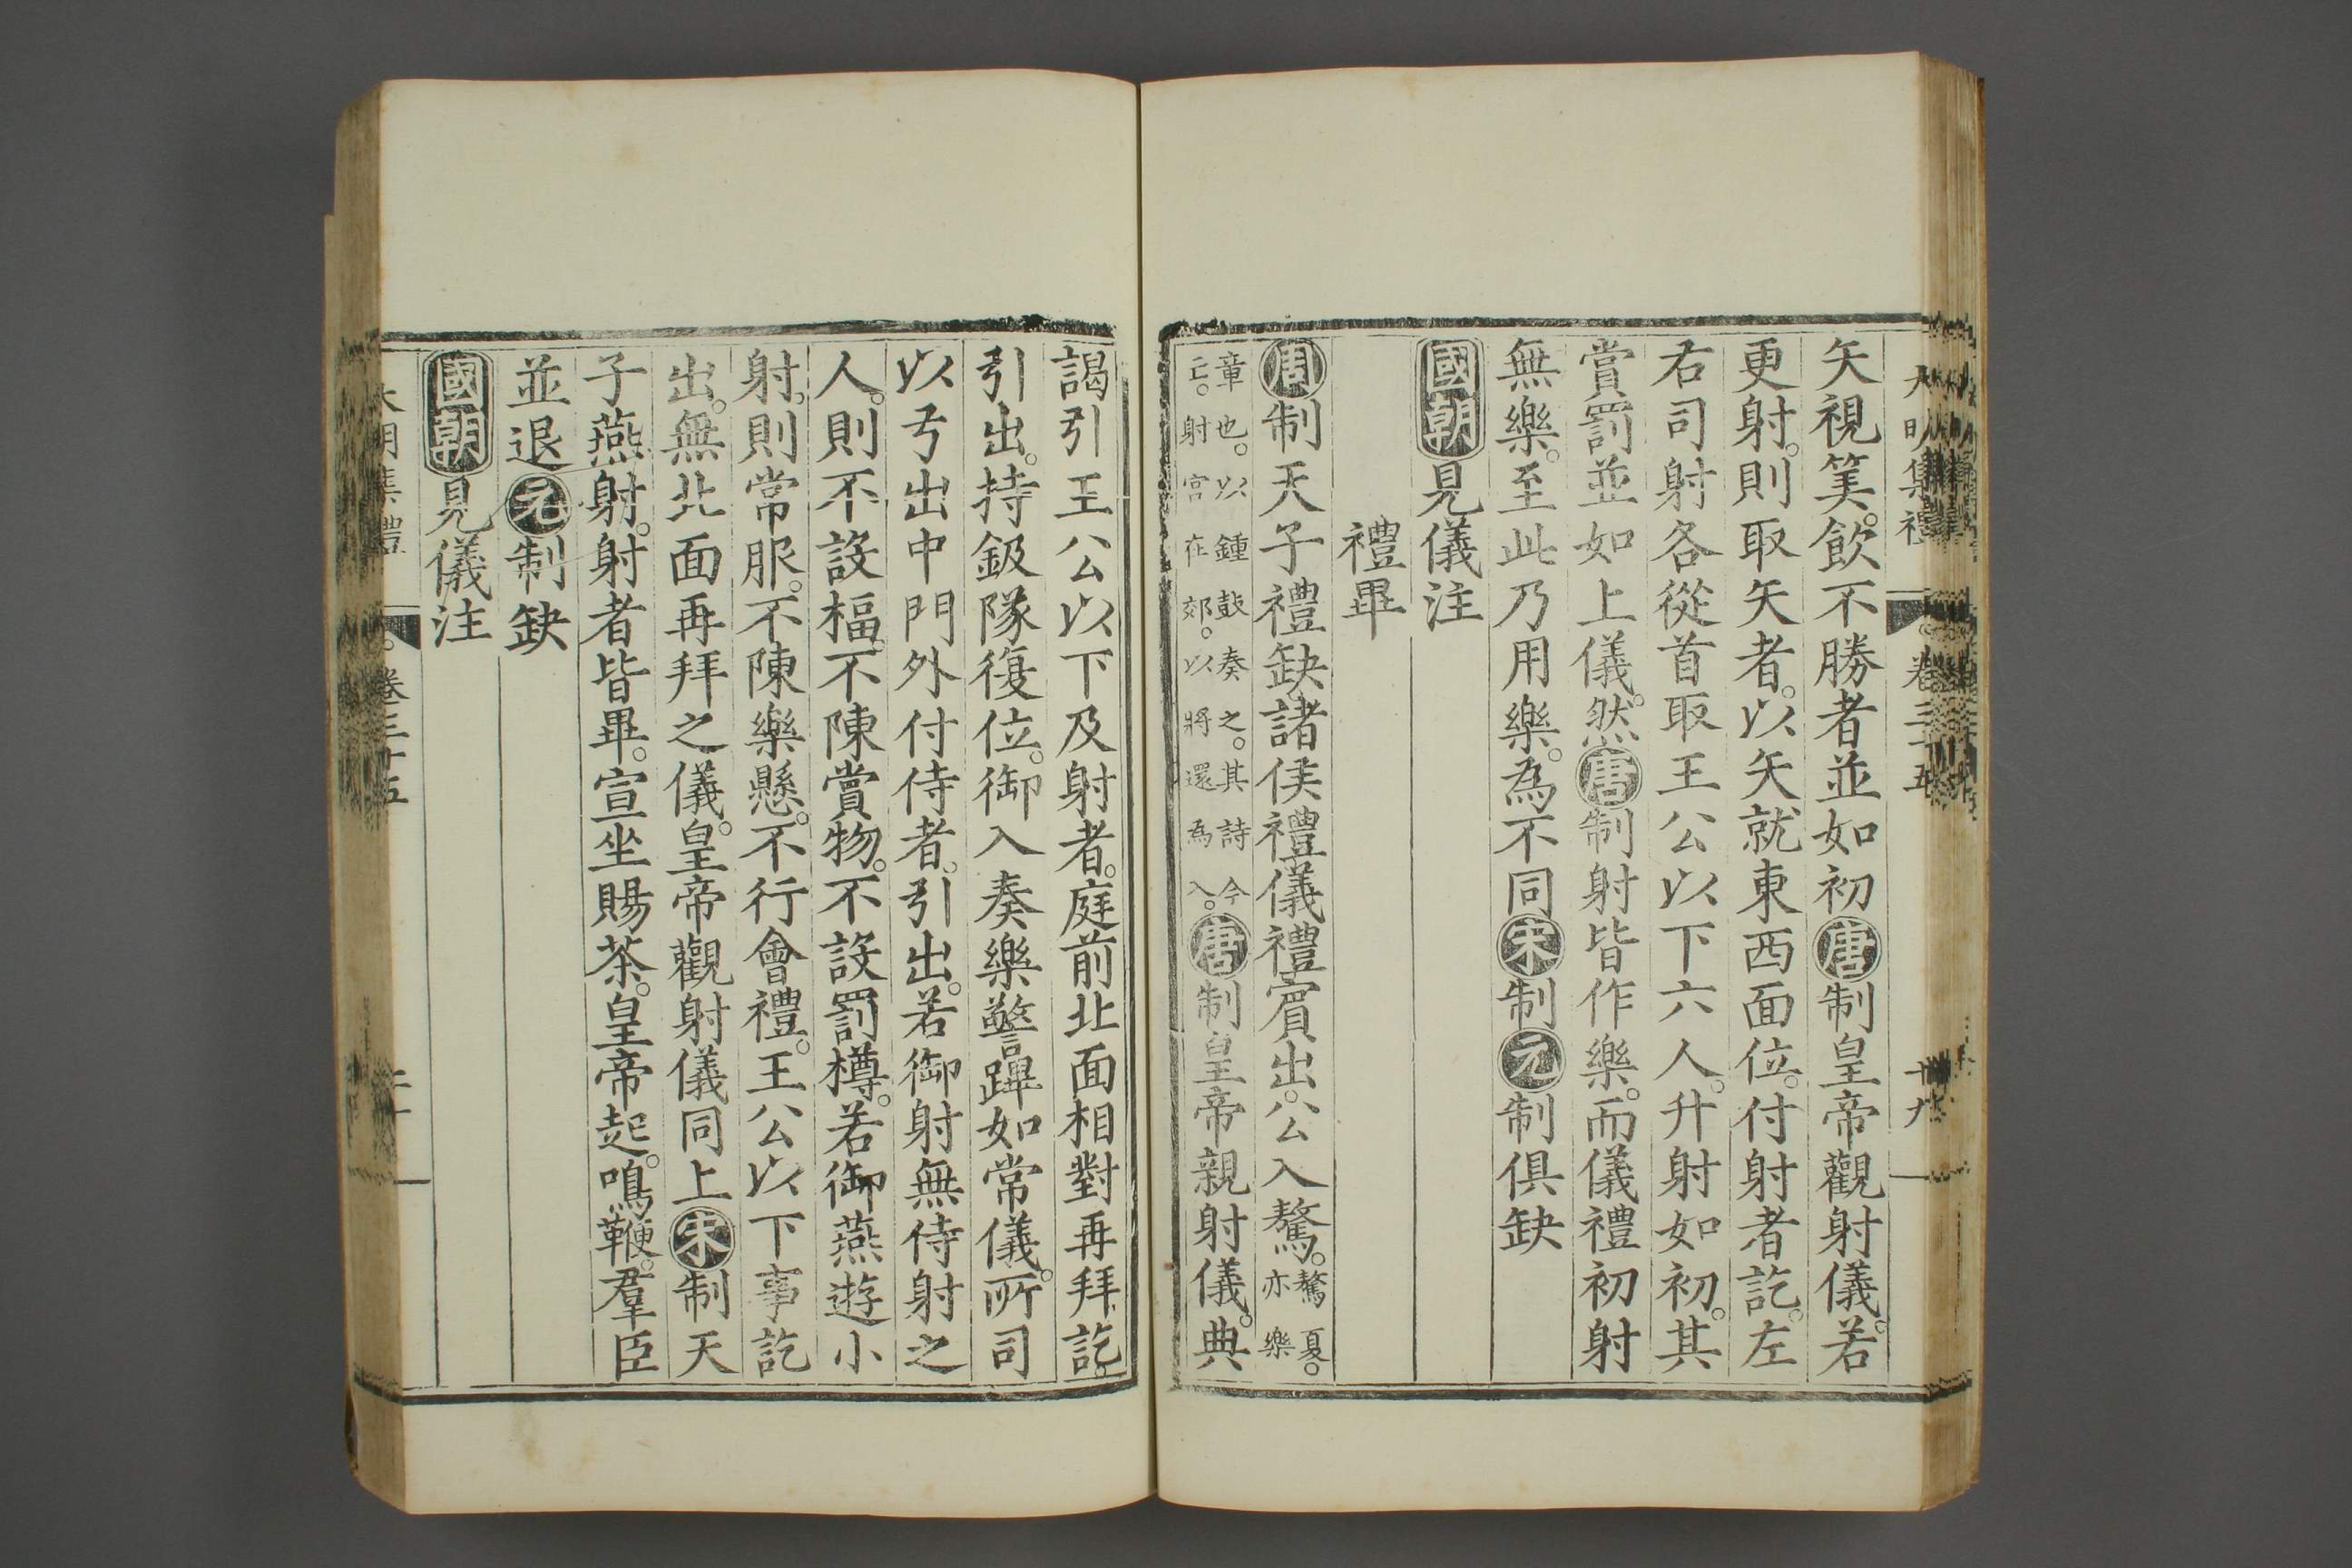 大明集禮 卷三十五 十九
矢視筭。飲不勝者並如初唐制皇帝觀射儀。若
更射。則取矢者。以矢就東西面位。付射者訖。左
右司射各從首取王公以下六人。升射如初。其
賞罰並如上儀。然唐制射皆作樂。而儀禮初射
無樂。至此乃用樂。為不同宋制元制俱缺
國朝見儀注
禮畢
周制天子禮缺諸侯禮儀禮賓出。公入驁。驁夏。亦樂
章也。以鍾鼓奏之。其詩今亡。射宮在郊。以將還為入。唐制皇帝親射儀。典
謁引王公以下及射者。庭前北面相對再拜訖。
引出。持鈒隊復位。御入奏樂警蹕如常儀。所司
以弓出中門外付侍者。引出。若御射無侍射之
人。則不設楅。不陳賞物。不設罰樽。若御燕遊小
射。則常服。不陳樂懸。不行會禮。王公以下事訖
出。無北面再拜之儀。皇帝觀射儀同上宋制天
子燕射。射者皆畢。宣坐賜茶。皇帝起。鳴鞭。羣臣
並退元制缺
國朝見儀注
大明集禮 卷三十五 二十